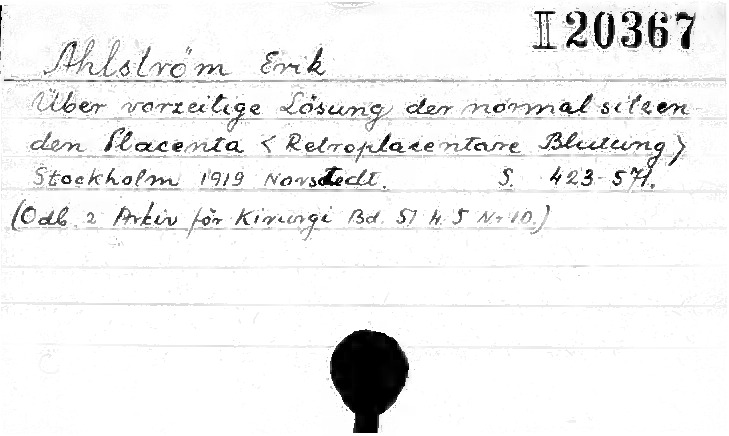 II 20367
Ahlström Erik
Über vorzeitige Lösung der normal sitzen
den Placenta < Retroplacentare Blutung >
Stockholm 1919 Norstedt. S. 423-571.
(Odb. z Arkiv för Kirurgi Bd. 51 H. 5 Nr 10.)